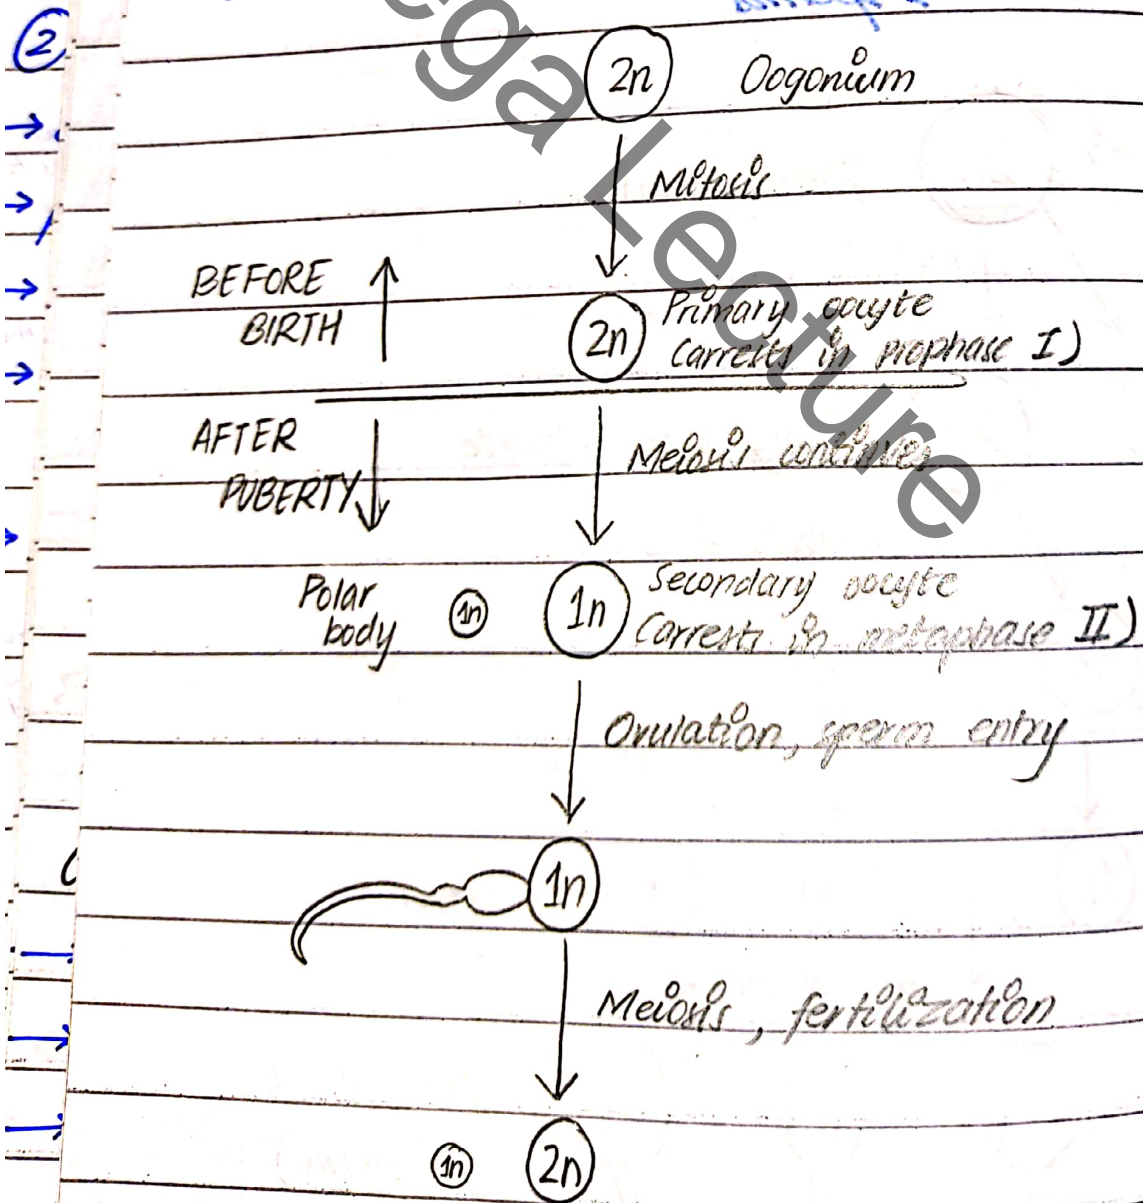 2
2n Oogonium
Mitosis
BEFORE
BIRTH
2n Primary oocyte
(arrests in prophase I)
AFTER
PUBERTY
Meiosis continues
Polar
body
1n
1n Secondary oocyte
(arrests in metaphase II)
Ovulation, sperm entry
1n
Meiosis, fertilization
1n 2n
ega Lecture